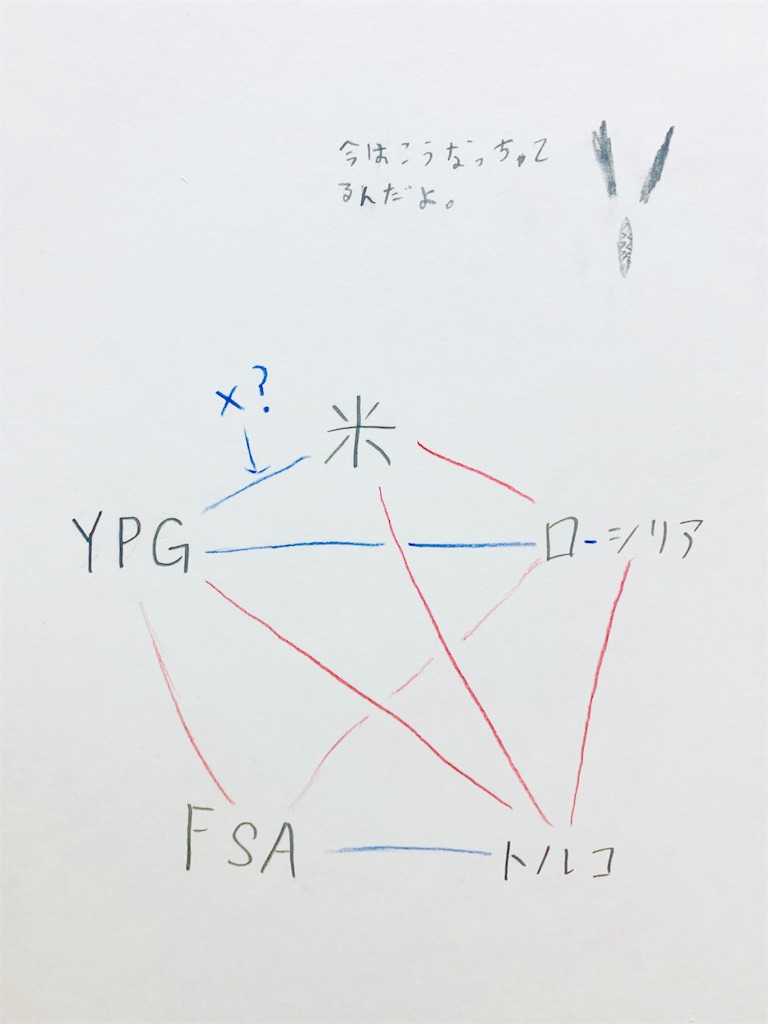 今はこうなっちゃて
るんだよ。
×?
米
YPG
ロ-シリア
FSA
トルコ